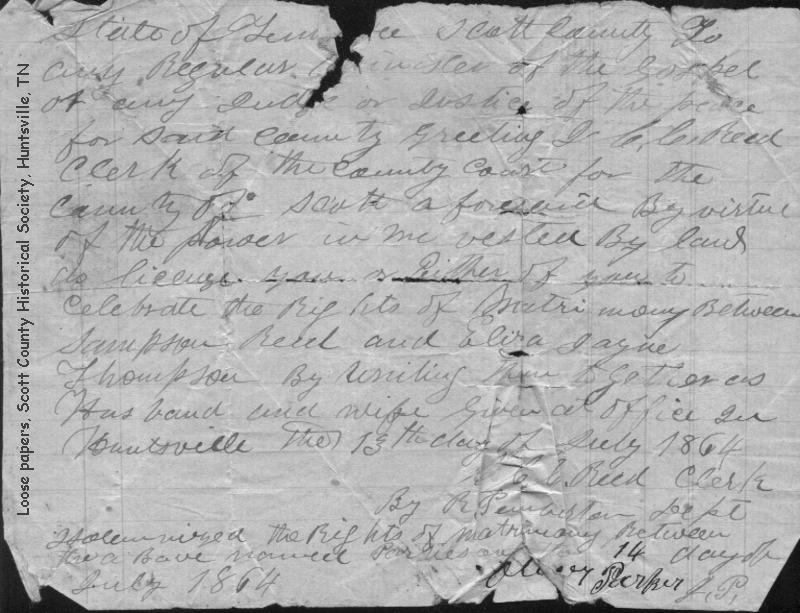 State of Tennessee Scott County To
any Regular Minister of the Gospel
or any Judge or Justice of the peace
for Said County Greeting I C. C. Reed
Clerk of the County Court for the
County of Scott aforesaid By virtue
of the Power in me vested By law
do license you or Either of you to
Celebrate the Rights of Matrimony Between
Sampson Reed and Eliza Jayne
Thompson By Uniting Them together as
Husband and wife Given at office In
Huntsville the 13th day of July 1864
C. C. Reed Clerk
By R Pemberton Dept
Solemnized the Rights of Matrimony Between
the a Bove named Parties on 14 day of
July 1864 Parker J. P.
Loose papers, Scott County Historical Society, Huntsville, TN